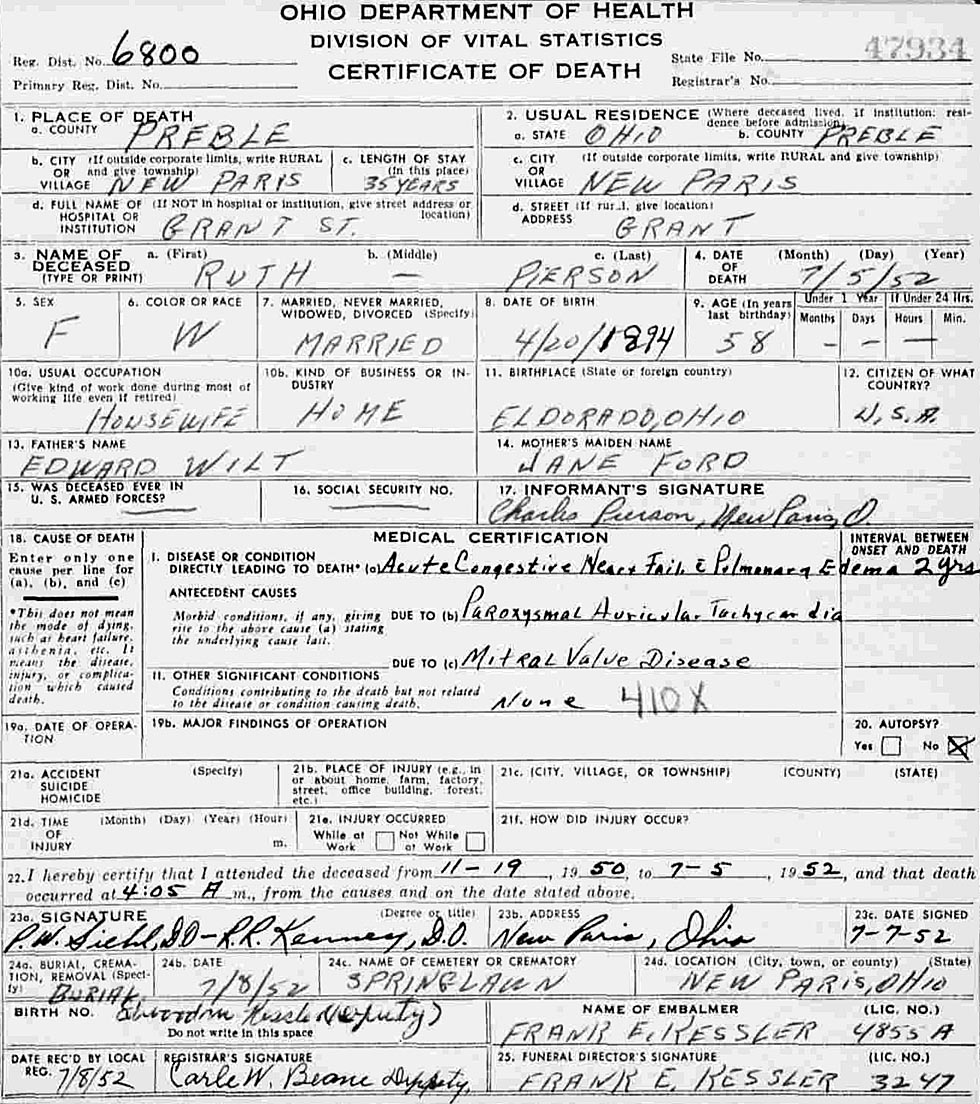 OHIO DEPARTMENT OF HEALTH
DIVISION OF VITAL STATISTICS
CERTIFICATE OF DEATH
Reg. Dist. No. 6800
Primary Reg. Dist. No.
State File No. 47934
Registrar's No.
1. PLACE OF DEATH
a. COUNTY PREBLE
2. USUAL RESIDENCE (Where deceased lived. If institution: residence before admission)
a. STATE OHIO b. COUNTY PREBLE
b. CITY (If outside corporate limits, write RURAL
OR and give township)
VILLAGE NEW PARIS
c. LENGTH OF STAY
(In this place)
35 YEARS
c. CITY (If outside corporate limits, write RURAL and give township)
OR
VILLAGE NEW PARIS
d. FULL NAME OF (If NOT in hospital or institution, give street address or location)
HOSPITAL OR
INSTITUTION GRANT ST.
d. STREET (If rural, give location)
ADDRESS GRANT
3. NAME OF DECEASED
(TYPE OR PRINT)
a. (First) RUTH
b. (Middle) —
c. (Last) PIERSON
4. DATE OF DEATH
(Month) (Day) (Year)
7/5/52
5. SEX
F
6. COLOR OR RACE
W
7. MARRIED, NEVER MARRIED, WIDOWED, DIVORCED (Specify)
MARRIED
8. DATE OF BIRTH
4/20/1894
9. AGE (In years last birthday)
58
Under 1 Year
Months Days
If Under 24 Hrs.
Hours Min.
— — —
10a. USUAL OCCUPATION
(Give kind of work done during most of working life even if retired)
HOUSEWIFE
10b. KIND OF BUSINESS OR INDUSTRY
HOME
11. BIRTHPLACE (State or foreign country)
ELDORADO, OHIO
12. CITIZEN OF WHAT COUNTRY?
U.S.A.
13. FATHER'S NAME
EDWARD WILT
14. MOTHER'S MAIDEN NAME
JANE FORD
15. WAS DECEASED EVER IN U. S. ARMED FORCES?
16. SOCIAL SECURITY NO.
17. INFORMANT'S SIGNATURE
Charles Pierson, New Paris, O.
18. CAUSE OF DEATH
Enter only one cause per line for (a), (b), and (c)
*This does not mean the mode of dying, such as heart failure, asthenia, etc. It means the disease, injury, or complication which caused death.
MEDICAL CERTIFICATION
INTERVAL BETWEEN ONSET AND DEATH
I. DISEASE OR CONDITION
DIRECTLY LEADING TO DEATH* (a) Acute Congestive Heart Fail. c̄ Pulmonary Edema 2 yrs
ANTECEDENT CAUSES
Morbid conditions, if any, giving rise to the above cause (a) stating the underlying cause last.
DUE TO (b) Paroxysmal Auricular Tachycardia
DUE TO (c) Mitral Valve Disease
II. OTHER SIGNIFICANT CONDITIONS
Conditions contributing to the death but not related to the disease or condition causing death.
None 410X
19a. DATE OF OPERATION
19b. MAJOR FINDINGS OF OPERATION
20. AUTOPSY?
Yes No X
21a. ACCIDENT (Specify)
SUICIDE
HOMICIDE
21b. PLACE OF INJURY (e.g., in or about home, farm, factory, street, office building, forest, etc.)
21c. (CITY, VILLAGE, OR TOWNSHIP) (COUNTY) (STATE)
21d. TIME OF INJURY
(Month) (Day) (Year) (Hour)
m.
21e. INJURY OCCURRED
While at Work Not While at Work
21f. HOW DID INJURY OCCUR?
22. I hereby certify that I attended the deceased from 11-19, 1950, to 7-5, 1952, and that death
occurred at 4:05 A m., from the causes and on the date stated above.
23a. SIGNATURE (Degree or title)
P.W. Siehl, DO - R.R. Kenney, D.O.
23b. ADDRESS
New Paris, Ohio
23c. DATE SIGNED
7-7-52
24a. BURIAL, CREMATION, REMOVAL (Specify)
BURIAL
24b. DATE
7/8/52
24c. NAME OF CEMETERY OR CREMATORY
SPRINGLAWN
24d. LOCATION (City, town, or county) (State)
NEW PARIS, OHIO
BIRTH NO.
Do not write in this space
(Deputy)
NAME OF EMBALMER
FRANK E. KESSLER
(LIC. NO.)
4855 A
DATE REC'D BY LOCAL REG.
7/8/52
REGISTRAR'S SIGNATURE
Carle W. Beane Deputy.
25. FUNERAL DIRECTOR'S SIGNATURE
FRANK E. KESSLER
(LIC. NO.)
3247